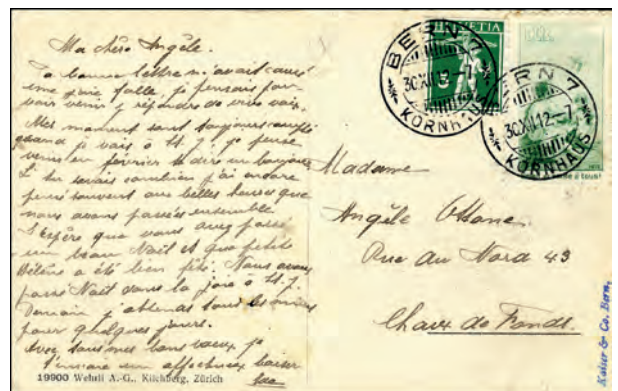 Ma chère Angèle.
Ta bonne lettre m'avait causé
une joie folle, je pensais pou-
voir venir y répondre de vive voix.
Mes moments sont toujours
quand je vais à St. J. je pense
venir en février te dire un bonjour
Si tu savais combien j'ai encore
pensé souvent aux belles heures que
nous avons passées ensemble
J'Espère que vous avez passé
un beau Noël et que petite
Hélène a été bien fêtée. Nous avons
passé Noël dans la joie à St. J.
Demain j'attends tous les miens
pour quelques jours.
Avec tous mes bons vœux je
t'envoie un affectueux baiser
19900 Wehrli A.-G., Kilchberg, Zürich
HELVETIA
5
BERN 7
30.XII.12.-7
KORNHAUS
BERN 7
30.XII.12.-7
KORNHAUS
Madame
Angèle Ottone
Rue du Nord 43
Chaux de Fonds.
Kaiser & Co. Bern,